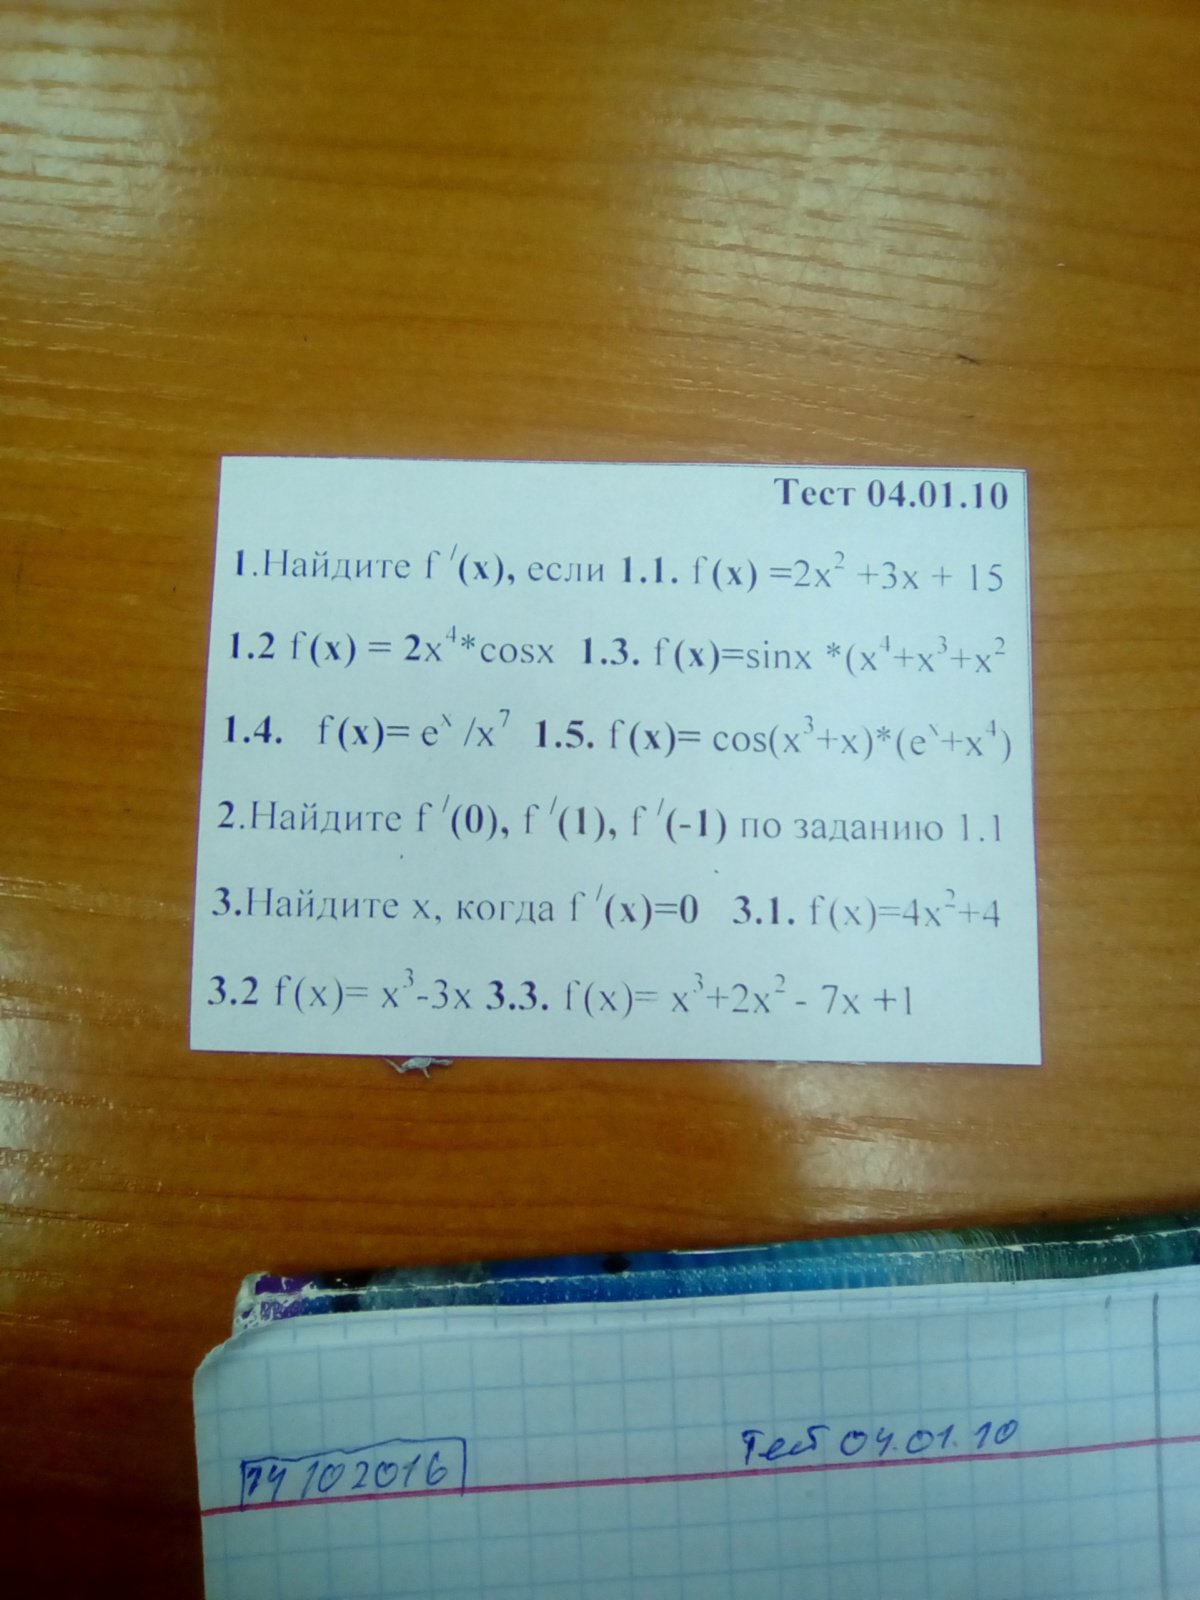 Тест 04.01.10
1.Найдите f ′(x), если 1.1. f(x) =2x² +3x + 15
1.2 f(x) = 2x⁴*cosx 1.3. f(x)=sinx *(x⁴+x³+x²
1.4. f(x)= eˣ /x⁷ 1.5. f(x)= cos(x³+x)*(eˣ+x⁴)
2.Найдите f ′(0), f ′(1), f ′(-1) по заданию 1.1
3.Найдите x, когда f ′(x)=0 3.1. f(x)=4x²+4
3.2 f(x)= x³-3x 3.3. f(x)= x³+2x² - 7x +1
Тест 04.01.10
14 10 2016